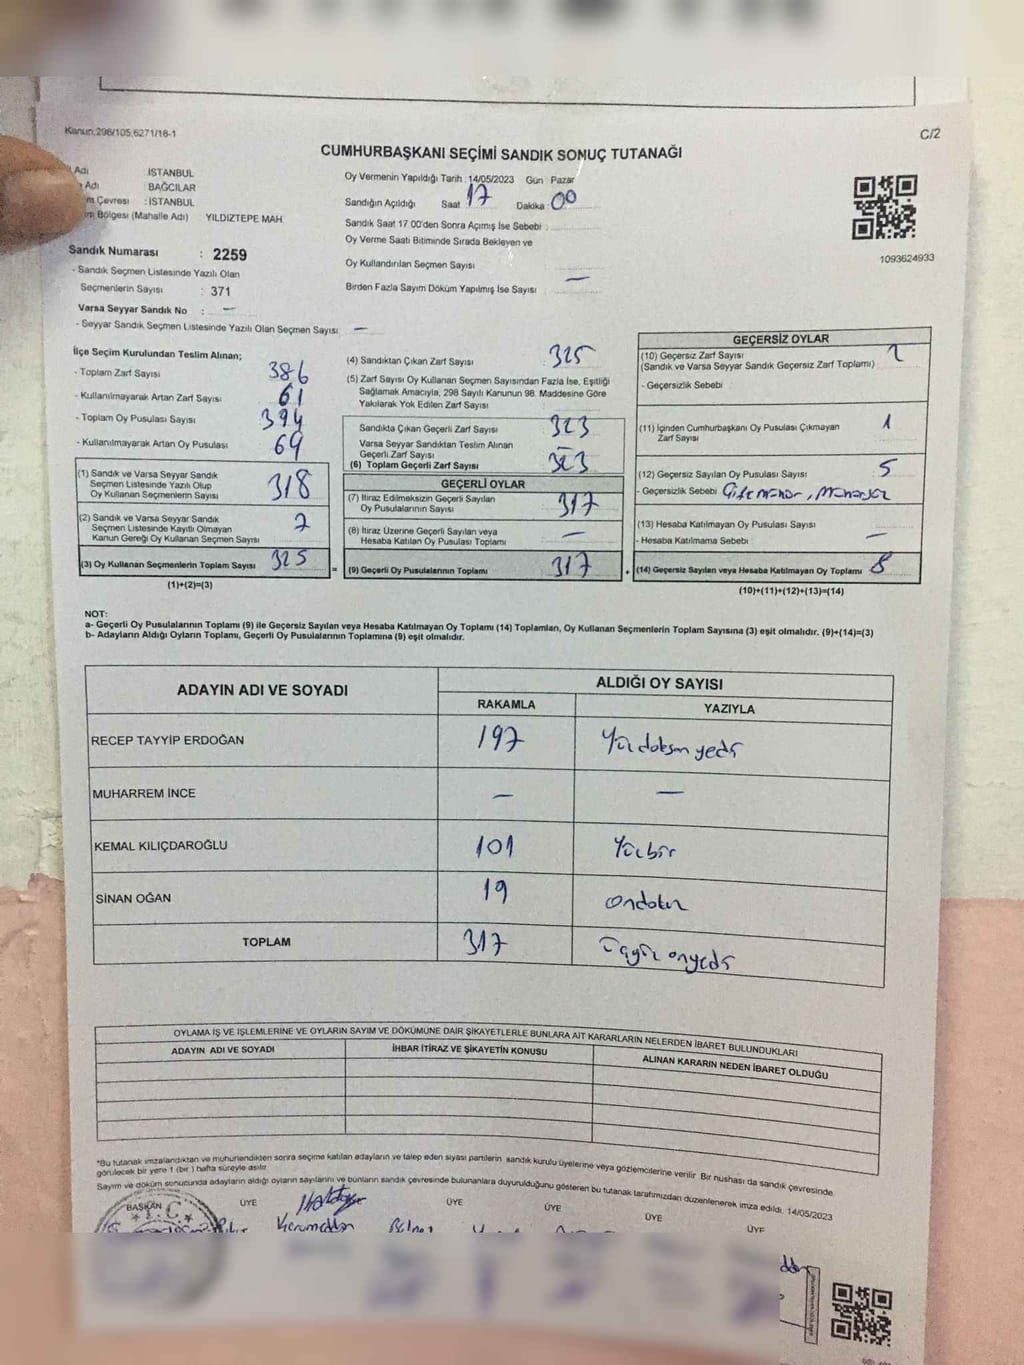 Kanun:298/105,6271/18-1
C/2
CUMHURBAŞKANI SEÇİMİ SANDIK SONUÇ TUTANAĞI
Adı İSTANBUL
Adı : BAĞCILAR
Çevresi : İSTANBUL
Bölgesi (Mahalle Adı) YILDIZTEPE MAH
Sandık Numarası : 2259
- Sandık Seçmen Listesinde Yazılı Olan
Seçmenlerin Sayısı : 371
Varsa Seyyar Sandık No : —
- Seyyar Sandık Seçmen Listesinde Yazılı Olan Seçmen Sayısı —
Oy Vermenin Yapıldığı Tarih : 14/05/2023 Gün : Pazar
Sandığın Açıldığı Saat 17 Dakika 00
Sandık Saat 17:00'den Sonra Açımış İse Sebebi :
Oy Verme Saati Bitiminde Sırada Bekleyen ve
Oy Kullandırılan Seçmen Sayısı
Birden Fazla Sayım Döküm Yapılmış İse Sayısı —
1093624933
İlçe Seçim Kurulundan Teslim Alınan;
- Toplam Zarf Sayısı 386
- Kullanılmayarak Artan Zarf Sayısı 61
- Toplam Oy Pusulası Sayısı 394
- Kullanılmayarak Artan Oy Pusulası 69
(1) Sandık ve Varsa Seyyar Sandık
Seçmen Listesinde Yazılı Olup
Oy Kullanan Seçmenlerin Sayısı 318
(2) Sandık ve Varsa Seyyar Sandık
Seçmen Listesinde Kayıtlı Olmayan
Kanun Gereği Oy Kullanan Seçmen Sayısı 7
(3) Oy Kullanan Seçmenlerin Toplam Sayısı 325
(1)+(2)=(3)
(4) Sandıktan Çıkan Zarf Sayısı 325
(5) Zarf Sayısı Oy Kullanan Seçmen Sayısından Fazla İse, Eşitliği
Sağlamak Amacıyla, 298 Sayılı Kanunun 98. Maddesine Göre
Yakılarak Yok Edilen Zarf Sayısı
Sandıkta Çıkan Geçerli Zarf Sayısı 323
Varsa Seyyar Sandıktan Teslim Alınan
Geçerli Zarf Sayısı —
(6) Toplam Geçerli Zarf Sayısı 323
GEÇERLİ OYLAR
(7) İtiraz Edilmeksizin Geçerli Sayılan
Oy Pusulalarının Sayısı 317
(8) İtiraz Üzerine Geçerli Sayılan veya
Hesaba Katılan Oy Pusulası Toplamı —
= (9) Geçerli Oy Pusulalarının Toplamı 317
GEÇERSİZ OYLAR
(10) Geçersiz Zarf Sayısı 2
(Sandık ve Varsa Seyyar Sandık Geçersiz Zarf Toplamı)
- Geçersizlik Sebebi
(11) İçinden Cumhurbaşkanı Oy Pusulası Çıkmayan 1
Zarf Sayısı
(12) Geçersiz Sayılan Oy Pusulası Sayısı 5
- Geçersizlik Sebebi
(13) Hesaba Katılmayan Oy Pusulası Sayısı
- Hesaba Katılmama Sebebi : —
+ (14) Geçersiz Sayılan veya Hesaba Katılmayan Oy Toplamı 8
(10)+(11)+(12)+(13)=(14)
NOT:
a- Geçerli Oy Pusulalarının Toplamı (9) ile Geçersiz Sayılan veya Hesaba Katılmayan Oy Toplamı (14) Toplamları, Oy Kullanan Seçmenlerin Toplam Sayısına (3) eşit olmalıdır. (9)+(14)=(3)
b- Adayların Aldığı Oyların Toplamı, Geçerli Oy Pusulalarının Toplamına (9) eşit olmalıdır.
ADAYIN ADI VE SOYADI ALDIĞI OY SAYISI
RAKAMLA YAZIYLA
RECEP TAYYİP ERDOĞAN 197 Yüz doksan yedi
MUHARREM İNCE — —
KEMAL KILIÇDAROĞLU 101 Yüzbir
SİNAN OĞAN 19 ondokuz
TOPLAM 317 üçyüz onyedi
OYLAMA İŞ VE İŞLEMLERİNE VE OYLARIN SAYIM VE DÖKÜMÜNE DAİR ŞİKAYETLERLE BUNLARA AİT KARARLARIN NELERDEN İBARET BULUNDUKLARI
ADAYIN ADI VE SOYADI İHBAR İTİRAZ VE ŞİKAYETİN KONUSU ALINAN KARARIN NEDEN İBARET OLDUĞU
*Bu tutanak imzalandıktan ve mühürlendikten sonra seçime katılan adayların ve talep eden siyasi partilerin sandık kurulu üyelerine veya gözlemcilerine verilir. Bir nushası da sandık çevresinde
görülecek bir yere 1 (bir ) hafta süreyle asılır.
Sayım ve döküm sonucunda adayların aldığı oyların sayılarını ve bunların sandık çevresinde bulunanlara duyurulduğunu gösteren bu tutanak tarafımızdan düzenlenerek imza edildi. 14/05/2023
BAŞKAN ÜYE ÜYE ÜYE ÜYE ÜYE
T.C.